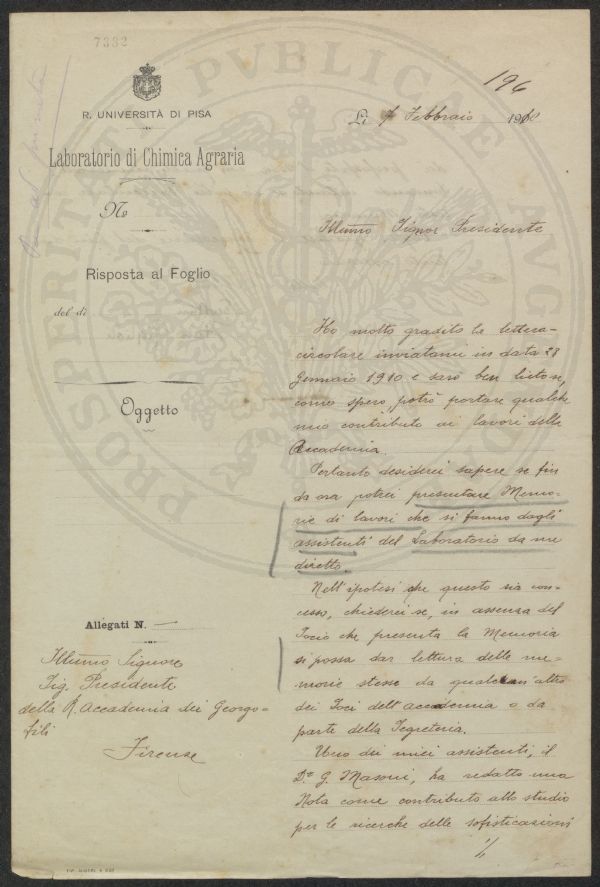 7332
196
R. UNIVERSITÀ DI PISA
Laboratorio di Chimica Agraria
No
Risposta al Foglio
del di
Oggetto
Allegati N. —
Illmo Signore
Sig. Presidente
della R. Accademia dei Georgo-
fili
Firenze
Lì 7 Febbraio 1910
Illmo Signor Presidente
Ho molto gradito la lettera-
circolare inviatami in data 28
Gennaio 1910 e sarò ben lieto se,
come spero, potrò portare qualche
mio contributo ai lavori della
Accademia.
Pertanto desiderei sapere se fin
da ora potrei presentare Memo-
rie di lavori che si fanno dagli
assistenti del Laboratorio da me
diretto.
Nell'ipotesi che questo sia con-
cesso, chiederei se, in assenza del
Socio che presenta la Memoria
si possa dar lettura delle me-
morie stesse da qualcun altro
dei Soci dell'accademia o da
parte della Segreteria.
Uno dei miei assistenti, il
Dr G. Masoni, ha redatto una
Nota come contributo allo studio
per le ricerche delle sofisticazioni
./.
PROSPERITATI PVBLICAE AVG